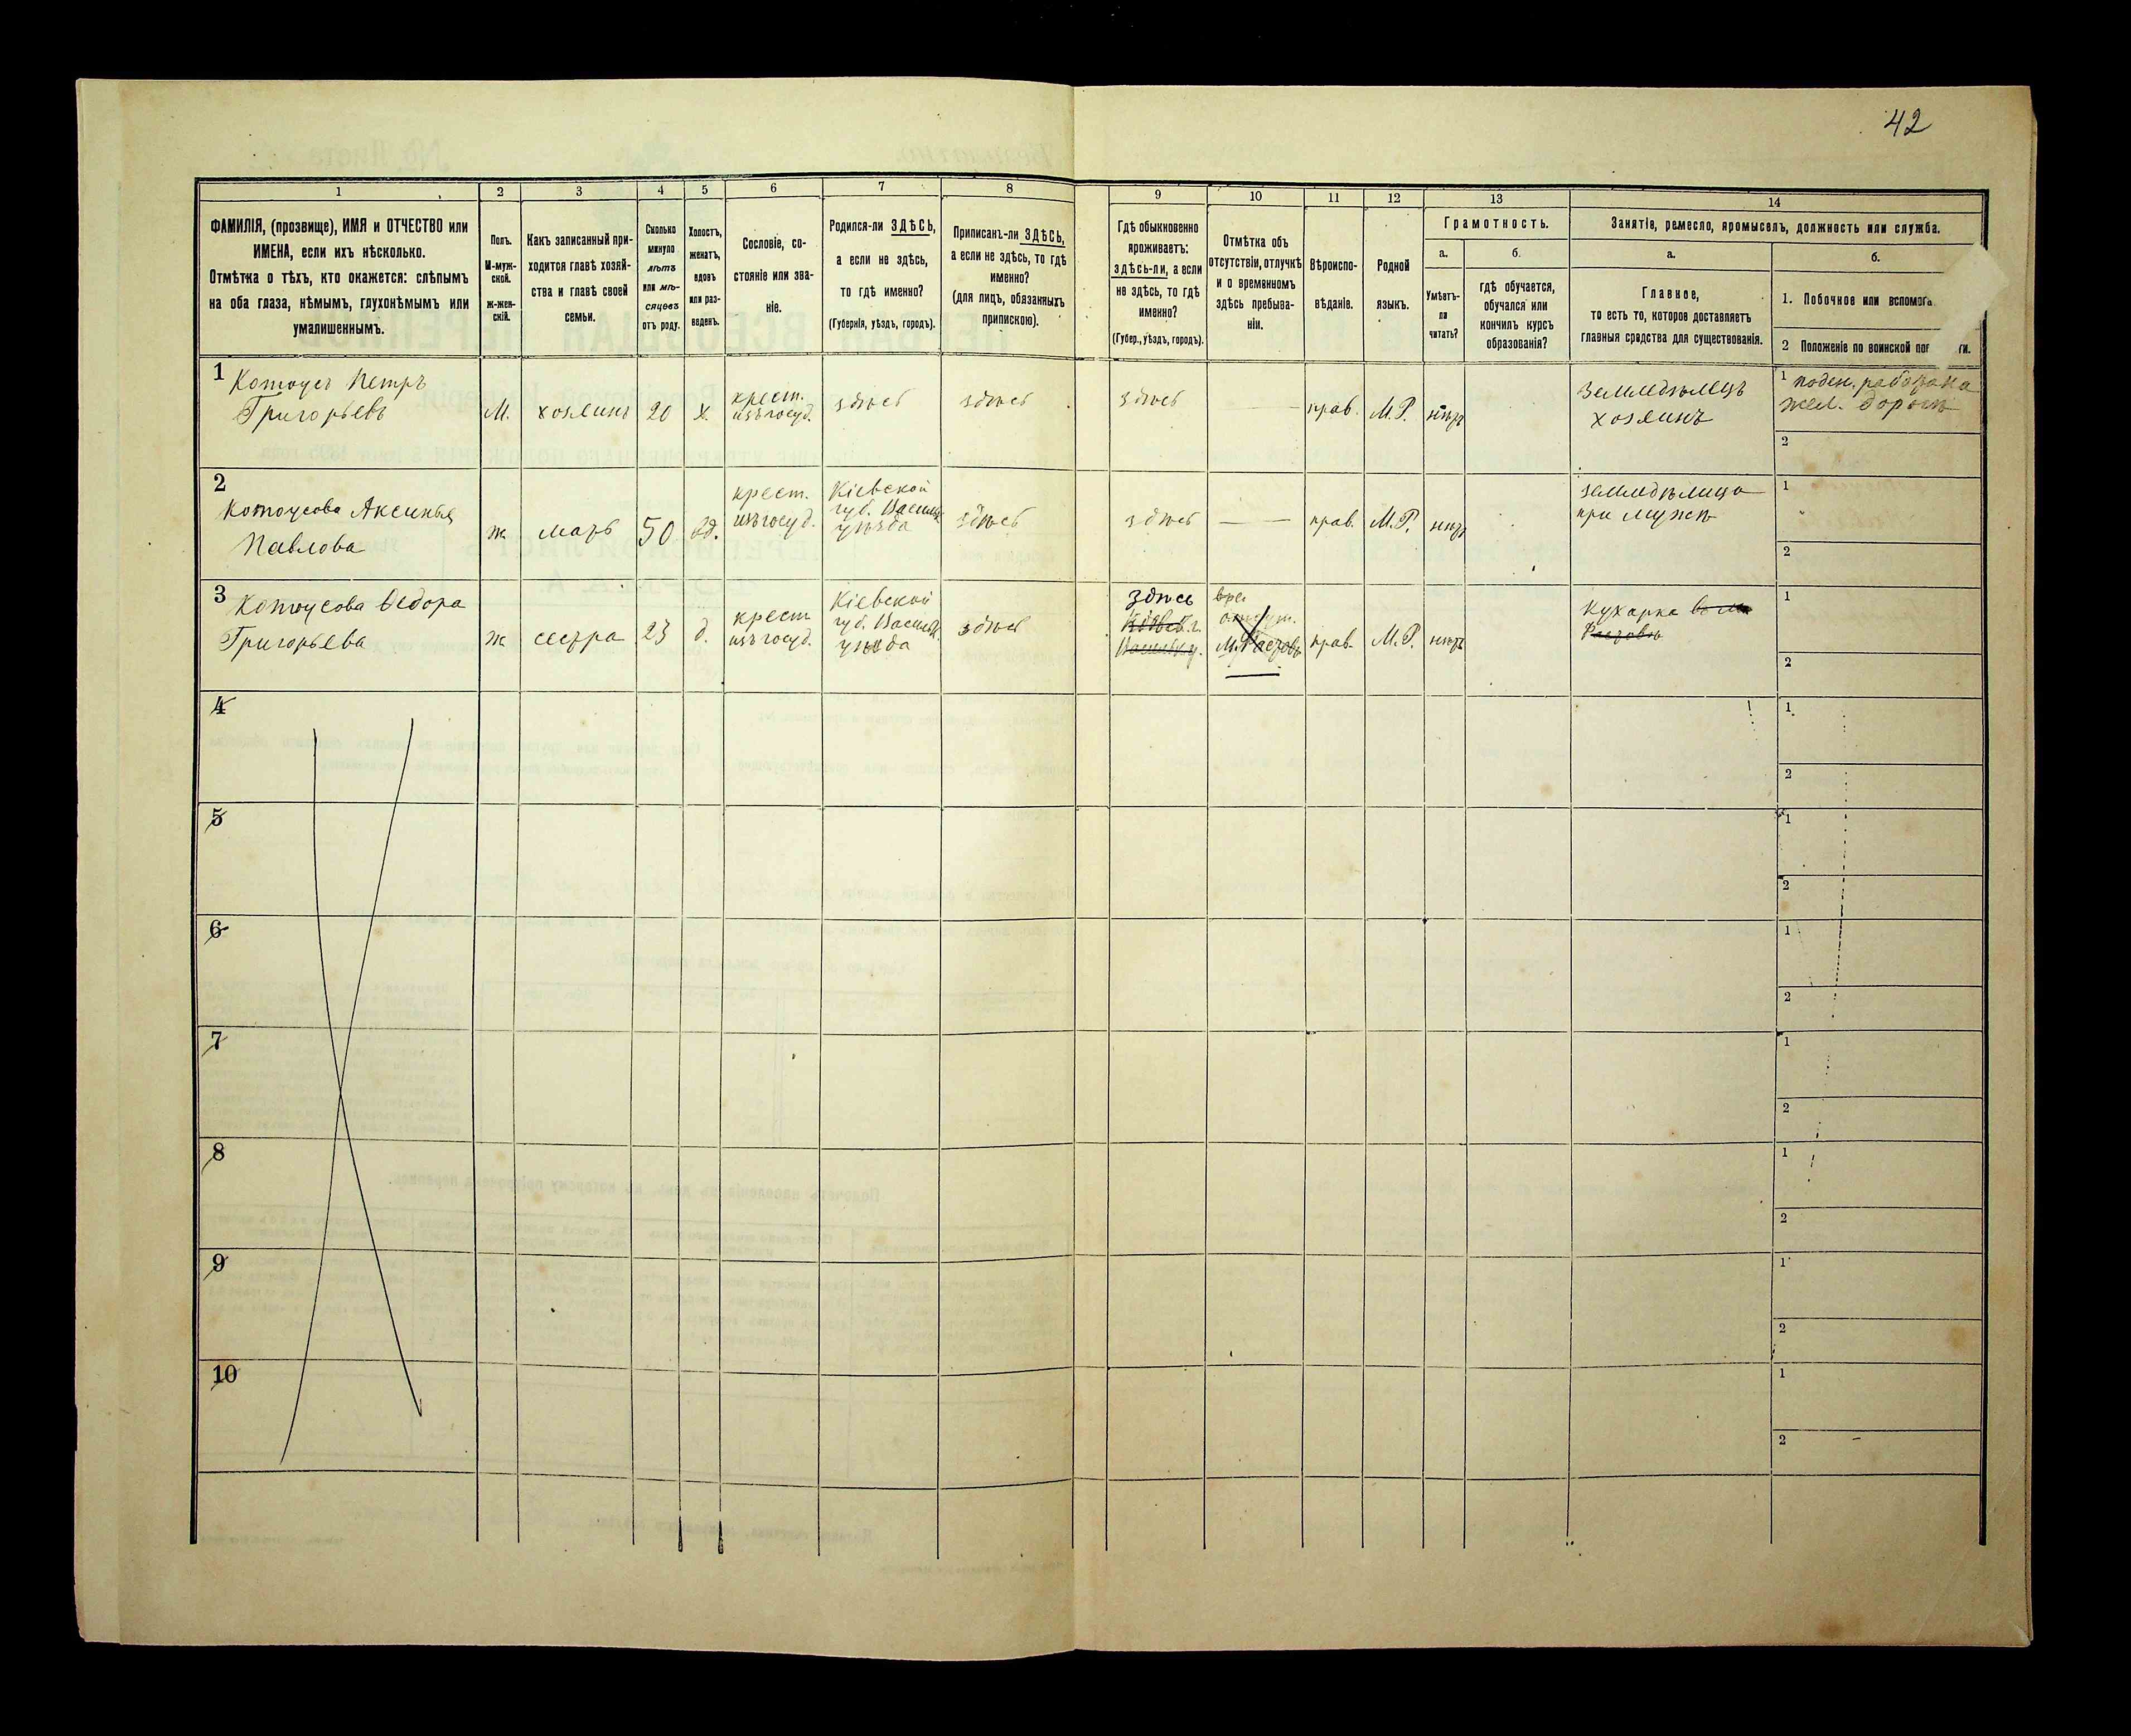 42
1 2 3 4 5 6 7 8 9 10 11 12 13 14
ФАМИЛІЯ, (прозвище), ИМЯ и ОТЧЕСТВО или
ИМЕНА, если ихъ нѣсколько.
Отмѣтка о тѣхъ, кто окажется: слѣпымъ
на оба глаза, нѣмымъ, глухонѣмымъ или
умалишеннымъ.
Полъ.
М-муж-
ской.
ж-жен-
скій.
Какъ записанный при-
ходится главѣ хозяй-
ства и главѣ своей
семьи.
Сколько
минуло
лѣтъ
или мѣ-
сяцевъ
отъ роду.
Холостъ,
женатъ,
вдовъ
или раз-
веденъ.
Сословіе, со-
стояніе или зва-
ніе.
Родился-ли ЗДѢСЬ,
а если не здѣсь,
то гдѣ именно?
(Губернія, уѣздъ, городъ).
Приписанъ-ли ЗДѢСЬ,
а если не здѣсь, то гдѣ
именно?
(для лицъ, обязанныхъ
припискою).
Гдѣ обыкновенно
проживаетъ:
здѣсь-ли, а если
не здѣсь, то гдѣ
именно?
(Губер., уѣздъ, городъ).
Отмѣтка объ
отсутствіи, отлучкѣ
и о временномъ
здѣсь пребыва-
ніи.
Вѣроиспо-
вѣданіе.
Родной
языкъ.
Грамотность.
а.
Умѣетъ-
ли
читать?
б.
гдѣ обучается,
обучался или
кончилъ курсъ
образованія?
Занятіе, ремесло, промыселъ, должность или служба.
а.
Главное,
то есть то, которое доставляетъ
главныя средства для существованія.
б.
1. Побочное или вспомога
2 Положеніе по воинской пов
1
Петръ
Григорьевъ
М.
хозяинъ
20
х.
крест.
изъ госуд.
здѣсь
здѣсь
здѣсь
прав.
М.Р.
нѣтъ
Земледѣлецъ
хозяинъ
1 поден. работа на
жел. дорогѣ
2
2
Аксинья
Павлова
ж
мать
50
вд.
крест.
изъ госуд.
Кіевской
губ. Васильк.
уѣзда
здѣсь
здѣсь
прав.
М.Р.
нѣтъ
земледѣлица
при мужѣ
1
2
3
Григорьева
ж
сестра
23
д.
крест
изъ госуд.
Кіевской
губ. Васильк.
уѣзда
здѣсь
здѣсь
прав.
М.Р.
нѣтъ
Кухарка
1
2
4
1
2
5
1
2
6
1
2
7
1
2
8
1
2
9
1
2
10
1
2